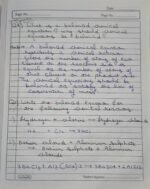 Date
Page No.
What is a balanced chemical
equation? Why should chemical
equation be balanced?
A balanced chemical equation
represents a chemical reaction
where the number of atoms of each
element on the reactant side is
equal to the number of atoms of
that element on the product side.
The chemical equation should be
balanced to satisfy the law of
conservation of mass
Write the balanced equation for
the following chemical reactions
Hydrogen + chlorine → Hydrogen chloride
H2 + Cl2 → 2HCl
Barium chloride + Aluminium Sulphate →
Barium Sulphate + Aluminium
chloride
3BaCl2 + Al2(SO4)3 → 3BaSO4 + 2AlCl3